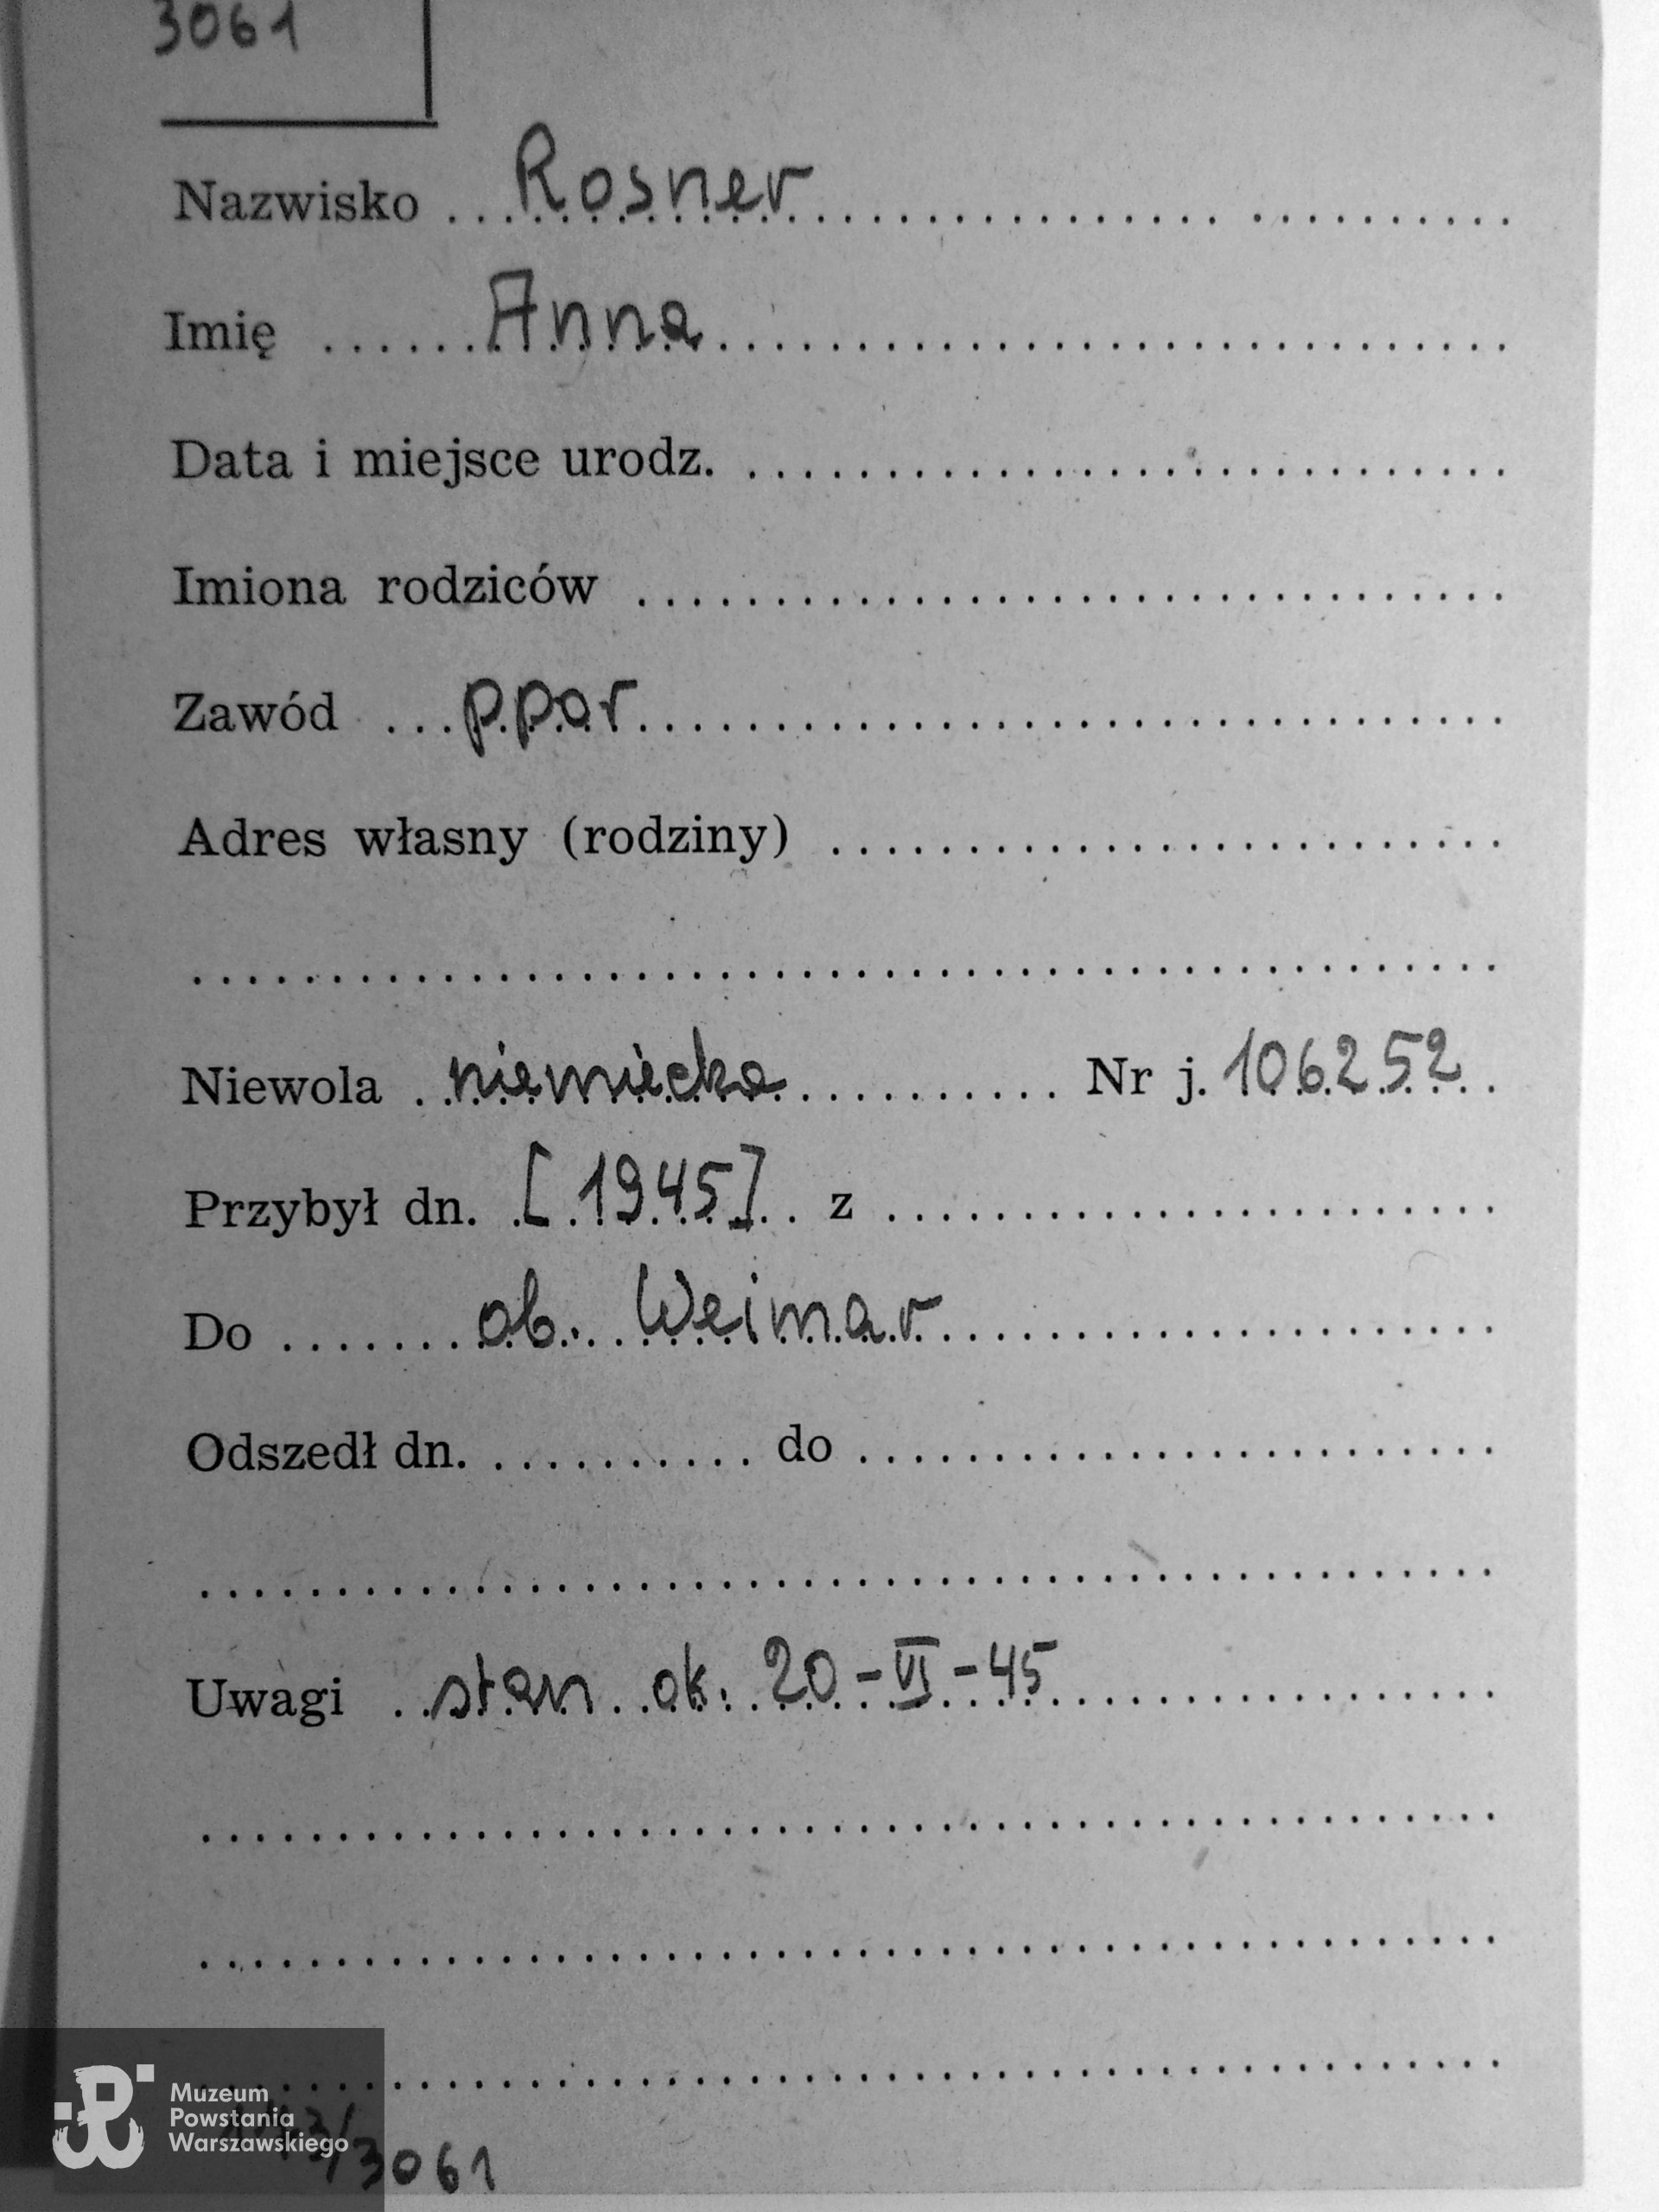 3061
Nazwisko Rosner
Imię Anna
Data i miejsce urodz.
Imiona rodziców
Zawód ppor
Adres własny (rodziny)
Niewola niemiecka Nr j. 106252
Przybył dn. [1945] z
Do ob. Weimar
Odszedł dn. do
Uwagi stan ok. 20-VI-45
Muzeum
Powstania
Warszawskiego
3/3061